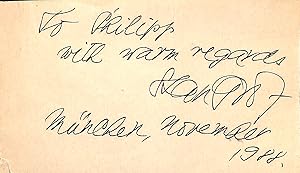 To Philipp
with warm regards
München, November
1988.